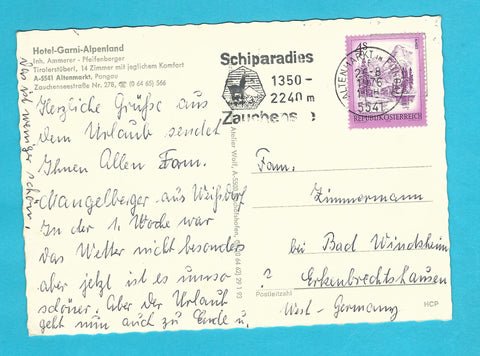 Hotel-Garni-Alpenland
Inh. Ammerer - Pfeifenberger
Tirolerstüberl, 14 Zimmer mit jeglichem Komfort
A-5541 Altenmarkt, Pongau
Zauchenseestraße Nr. 278, ☎ (0 64 65) 566
Herzliche Grüße aus
dem Urlaub sendet
Ihnen Allen Fam.
Mangelberger aus Weißdorf
In der 1. Woche war
das Wetter nicht besonders
aber jetzt ist es umso
schöner. Aber der Urlaub
geht nun auch zu Ende u.
weniger schön!
Schiparadies
1350-
2240 m
Zauchens
Atelier Wolf, A-550
ALTENMARKT im PONGAU
5541
4S
REPUBLIK ÖSTERREICH
Fam.
Zimmermann
bei Bad Windsheim
? Erkenbrechtshausen
Postleitzahl
West-Germany
HCP